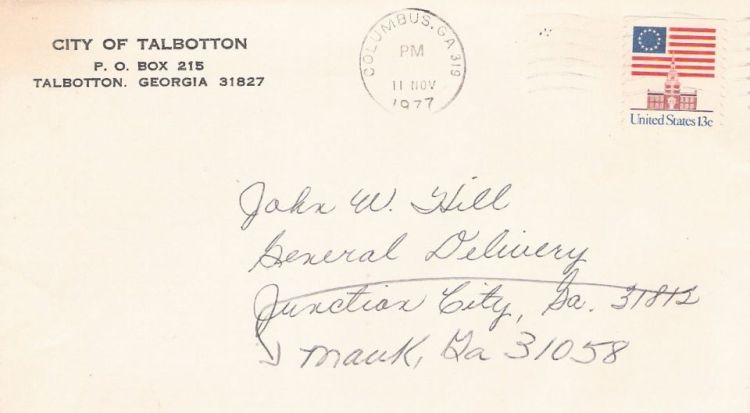 CITY OF TALBOTTON
P. O. BOX 215
TALBOTTON, GEORGIA 31827
COLUMBUS, GA 319
PM
11 NOV
1977
United States 13c
John W. Hill
General Delivery
Junction City, Ga. 31812
Mauk, Ga 31058